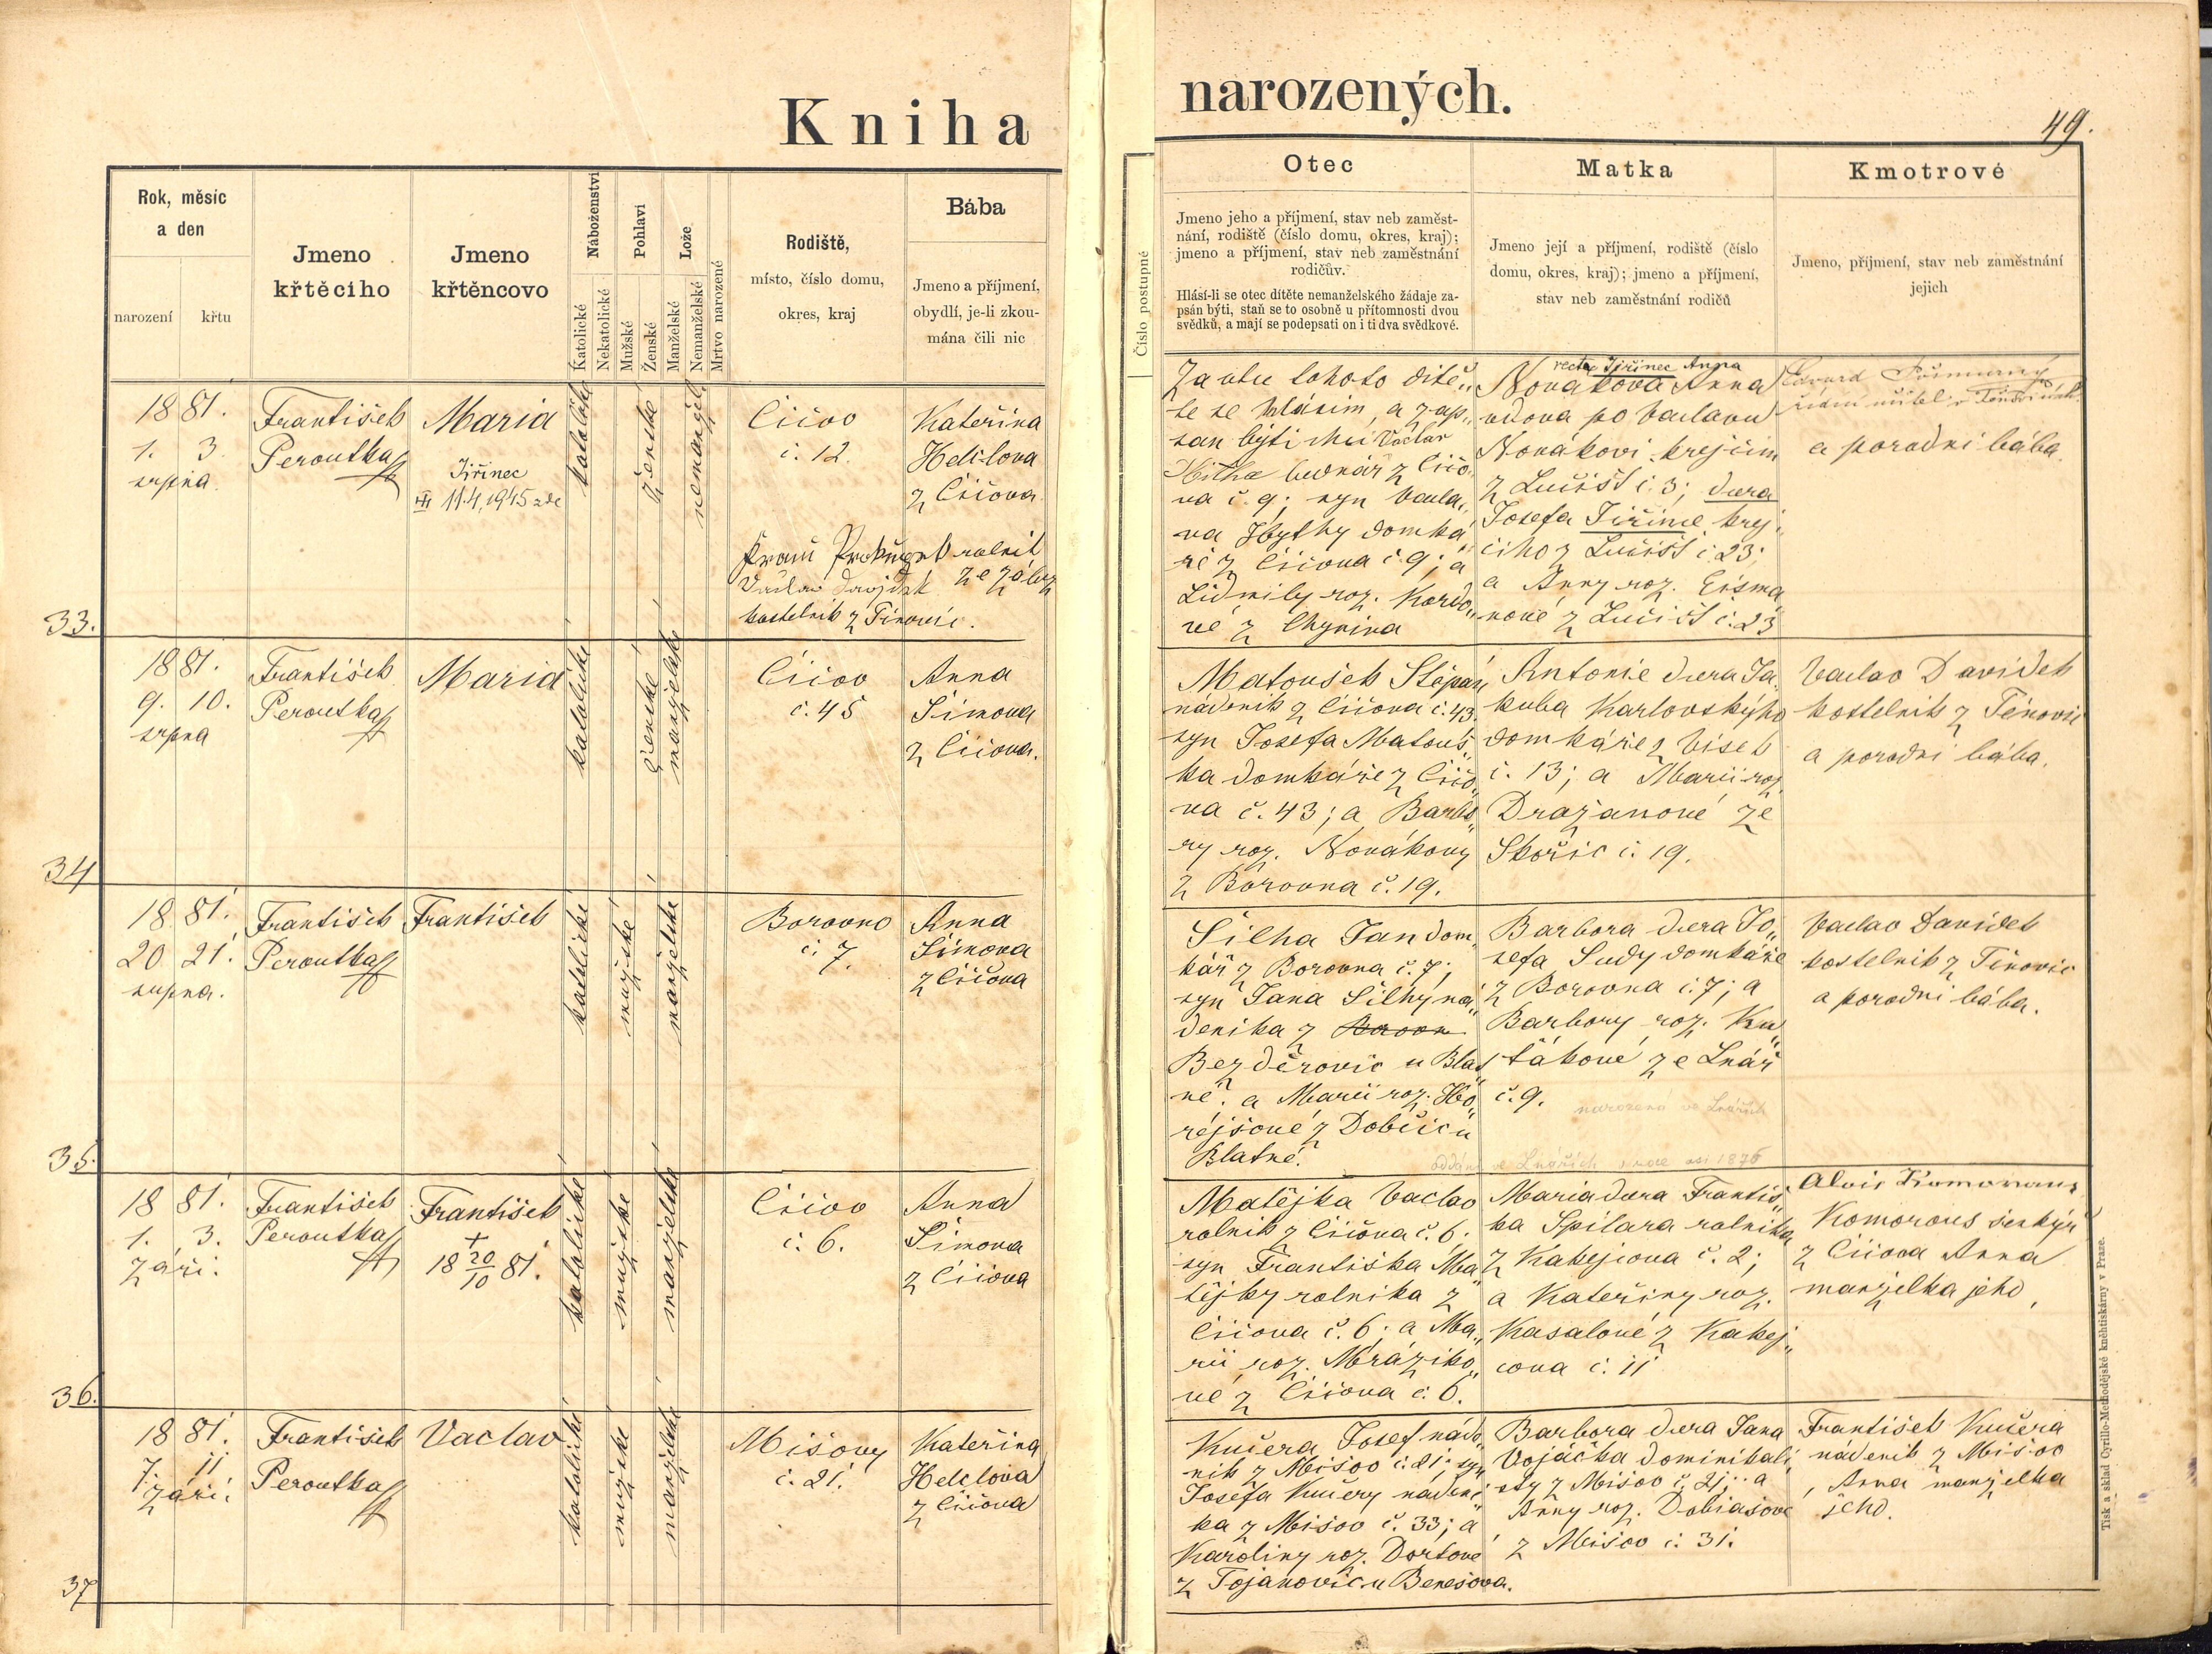 Kniha narozených.
49.
Rok, měsíc
a den
narození
křtu
Jmeno
křtěcího
Jmeno
křtěncovo
Náboženství
Katolické
Nekatolické
Pohlaví
Mužské
Ženské
Lože
Manželské
Nemanželské
Mrtvo narozené
Rodiště,
místo, číslo domu,
okres, kraj
Bába
Jmeno a příjmení,
obydlí, je-li zkou-
mána čili nic
Číslo postupné
Otec
Jmeno jeho a příjmení, stav neb zaměst-
nání, rodiště (číslo domu, okres, kraj);
jmeno a příjmení, stav neb zaměstnání
rodičův.
Hlásí-li se otec dítěte nemanželského žádaje za-
psán býti, staň se to osobně u přítomnosti dvou
svědků, a mají se podepsati on i ti dva svědkové.
Matka
Jmeno její a příjmení, rodiště (číslo
domu, okres, kraj); jmeno a příjmení,
stav neb zaměstnání rodičů
Kmotrové
Jmeno, příjmení, stav neb zaměstnání
jejich
33.
1881.
1. 3.
srpna
František
Peroutka
Maria
Jiřinec
11.4.1945 zde
katolické
ženské
nemanžel.
Číčov
č. 12.
Kateřina
z Číčova
rolník
Václav Davídek
kostelník z Těnovic.
Za otce tohoto dítě„
te se hlásím, a zap„
san býti chci Václav
z Číčo„
va č. 9; syn Václa„
va domká„
ře z Číčova č. 9; a
Lidmily roz.
vé z Chynína
recte Jiřinec Anna
Nováková Anna
vdova po Václavu
Novákovi krejčím
z Lučišť č. 3; dcera
Josefa Jiřince krej„
čího z Lučišť č. 23;
a Anny roz. Eisma„
nové z Lučišť č. 23
a porodní bába.
34
1881.
9. 10.
srpna
František
Peroutka
Maria
katolické
ženské
manželské
Číčov
č. 45
Anna
Šímova
z Číčova.
Matoušek Štěpán
nádeník z Číčova č. 43.
syn Josefa Matouš„
ka domkáře z Číčo„
va č. 43; a Barbo„
ry roz. Novákovy
z Borovna č. 19.
Antonie dcera Ja„
kuba Karlovského
domkáře z Vísek
č. 13; a Marii roz.
Dražanové ze
Skořic č. 19.
Václav Davídek
kostelník z Těnovic
a porodní bába.
35.
1881.
20 21.
srpna.
František
Peroutka
František
katolické
mužské
manželské
Borovno
č. 7.
Anna
Šímova
z Číčova
Šilha Jan dom„
kář z Borovna č. 7;
syn Jana Šilhy ná„
deníka z
Bezděrovic u Blat
né. a Marii roz. Ho„
rejšové z Dobšic u
Blatné.
Barbora dcera Jo„
sefa Sudy domkáře
z Borovna č. 7; a
Barbory roz. Ku„
ťákové ze Lnář
č. 9.
narozená ve Lnářích
oddáni ve Lnářích 1876
Václav Davídek
kostelník z Těnovic
a porodní bába.
36.
1881.
1. 3.
září.
František
Peroutka
František
+
18 20/10 81.
katolické
mužské
manželské
Číčov
č. 6.
Anna
Šímova
z Číčova
Matějka Václav
rolník z Číčova č. 6;
syn Františka Ma„
tějky rolníka z
Číčova č. 6; a Ma„
rii roz. Mrázko„
vé z Číčova č. 6.
Maria dcera Františ„
ka Špilara rolníka
z Kakejcova č. 2;
a Kateřiny roz.
Kasalové z Kakej„
cova č. 11
Alois Komorous
Komorous šenkýř
z Číčova Anna
manželka jeho
37
1881.
7. 11
září.
František
Peroutka
Vaclav
katolické
mužské
manželské
Mišovy
č. 21.
Kateřina
z Číčova
Kučera Josef náde„
ník z Mišov č. 21; syn
Josefa Kučery nádení„
ka z Mišov č. 33; a
Karoliny roz. Dortové
z Tojanovic u Benešova.
Barbora dcera Jana
Vojáčka dominikali„
sty z Mišov č. 21; a
Anny roz. Dobiašove
z Mišov č. 31.
František Kučera
nádeník z Mišov
, Anna manželka
jeho.
Tisk a sklad Cyrillo-Methodějské knihtiskárny v Praze.